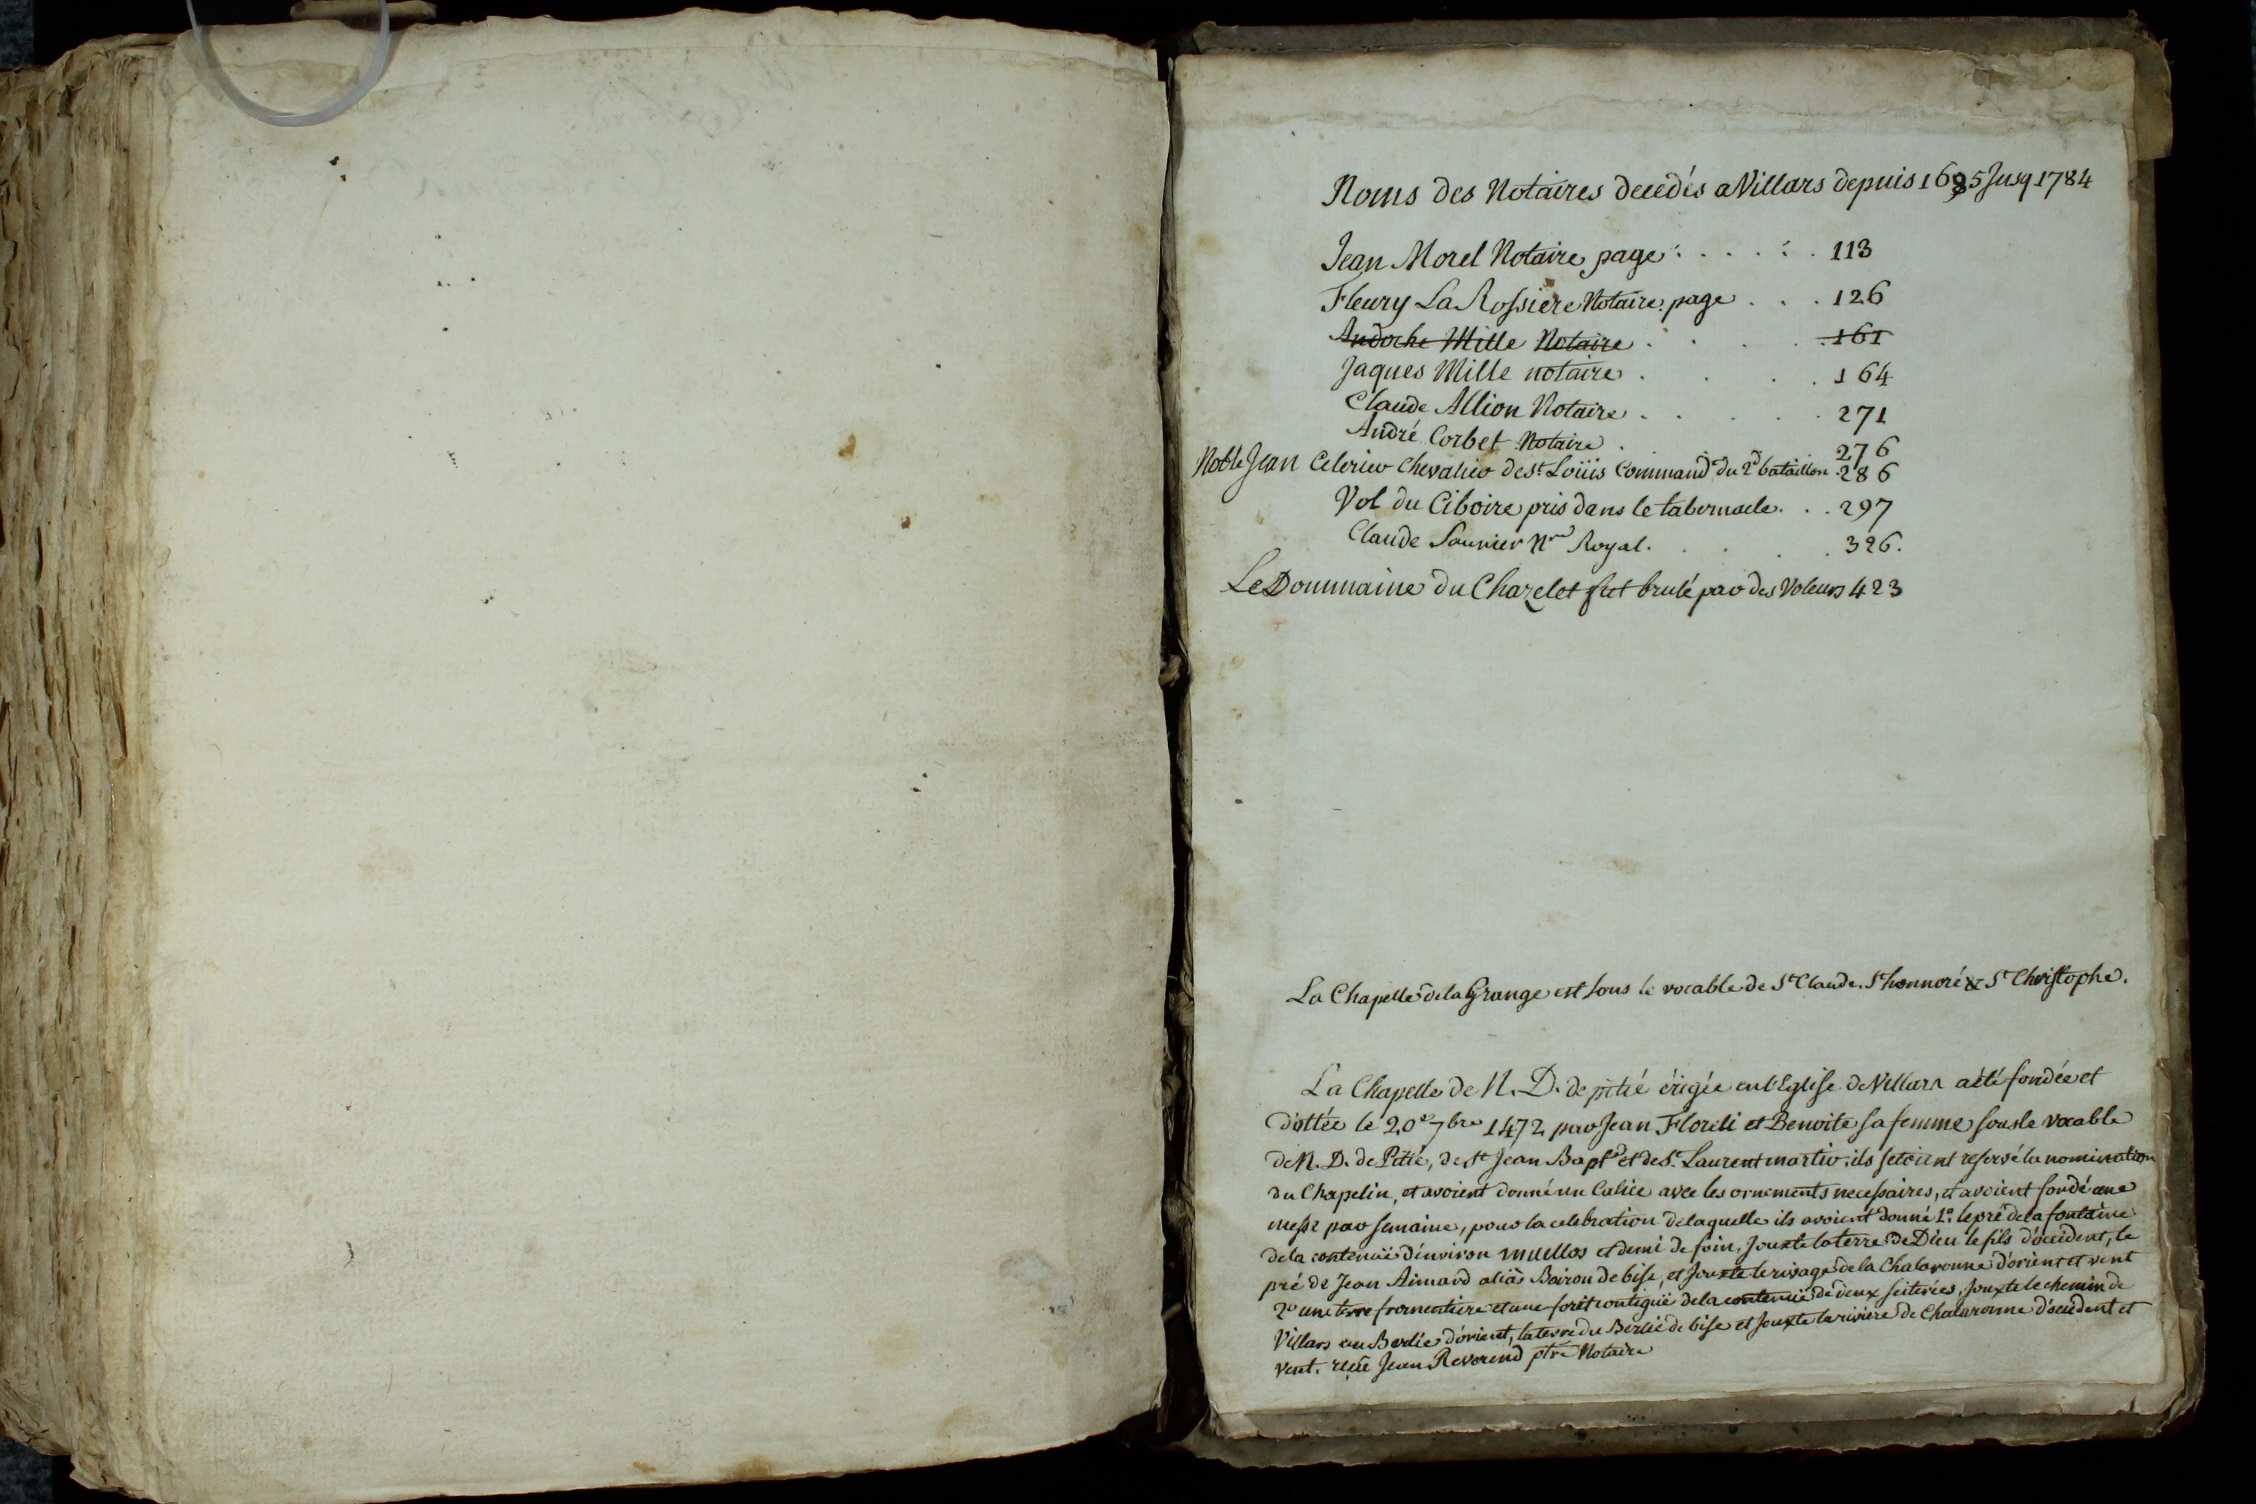 Noms des Notaires decedés a Villars depuis 1695 Jusq 1784
Jean Morel Notaire page . . . . . . 113
Fleury La Rossiere Notaire page . . . 126
Andoche Mille Notaire . . . . 161
Jaques Mille notaire . . . . 164
Claude Allion Notaire . . . . 271
André Corbet Notaire . . . . 276
Noble Jean Celerier Chevalier de St. Loüis Command du 2d bataillon . 286
Vol du Ciboire pris dans le tabernacle . . . 297
Claude Saunier Nre Royal . . . . 326.
Le Dommaine du Chazelet fut brulé par des Voleurs 423
La Chapelle de la Grange est sous le vocable de St Claude. St honnoré & St Christophe.
La Chapelle de N. D. de pitié érigée en l'Eglise de Villars a été fondée et
dottée le 20e 7bre 1472 par Jean Floreti et Benoite sa femme sous le vocable
de N. D. de Pitié, de St Jean Bapte et de St. Laurent martir; ils s'etoient reservé la nomination
du Chapelin, et avoient donné un Calice avec les ornements necessaires, et avoient fondé une
messe par semaine, pour la celebration de laquelle ils avoient donné 1.o le pré de la fontaine
de la contenuë d'environ muellos et demi de foin, Jouxte la terre de Dieu le fils d'occident, le
pré de Jean Aimard aliàs Boiron de bise, et Jouxte le rivage de la Chalaronne d'orient et vent
2o une terre fromentiere et une forêt contiguë de la contenuë de deux seiterées, Jouxte le chemin de
Villars au Berlie d'orient, la terre du Berlie de bise et Jouxte la riviere de Chalaronne d'occident et
vent. reçu Jean Reverend ptre Notaire